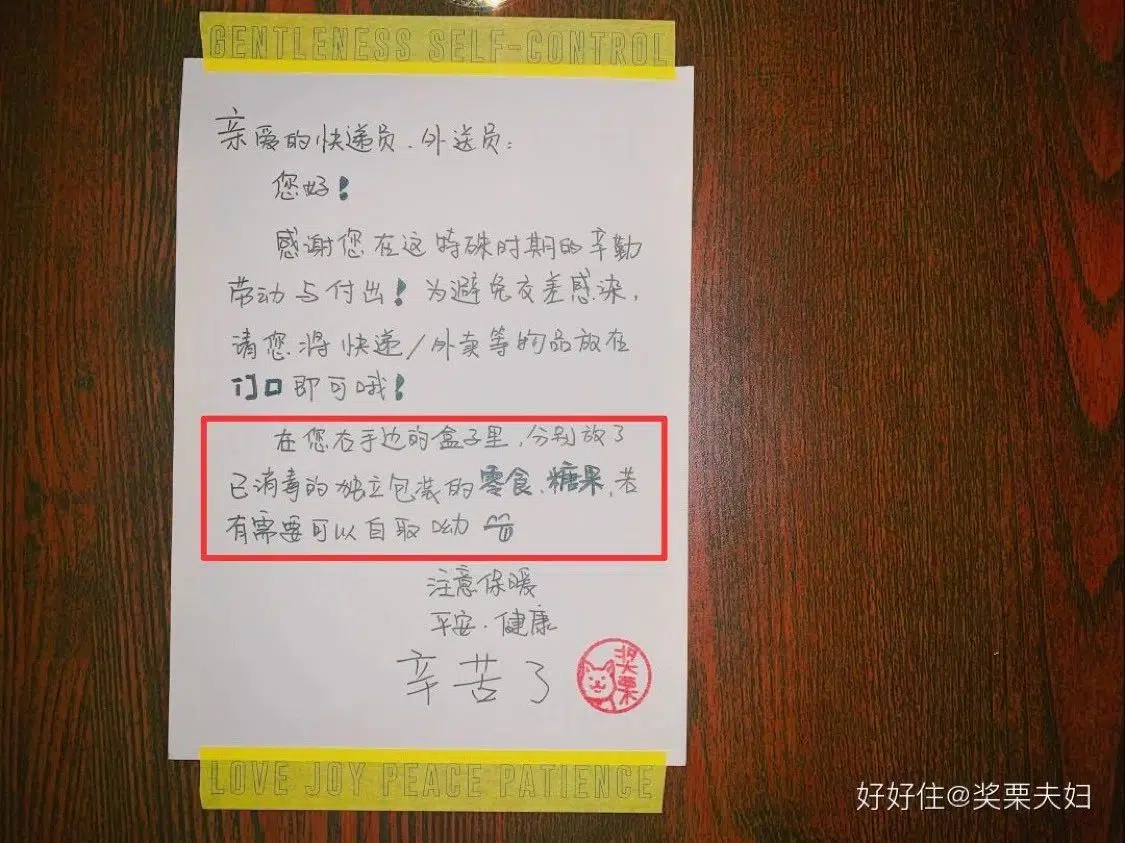 GENTLENESS SELF-CONTROL
亲爱的快递员、外送员：
您好！
感谢您在这特殊时期的辛勤
劳动与付出！为避免交差感染，
请您将快递/外卖等物品放在
门口即可哦！
在您右手边的盒子里，分别放了
已消毒的独立包装的零食、糖果，若
有需要可以自取呦
注意保暖
平安·健康
辛苦了
奖栗
LOVE JOY PEACE PATIENCE
好好住@奖栗夫妇